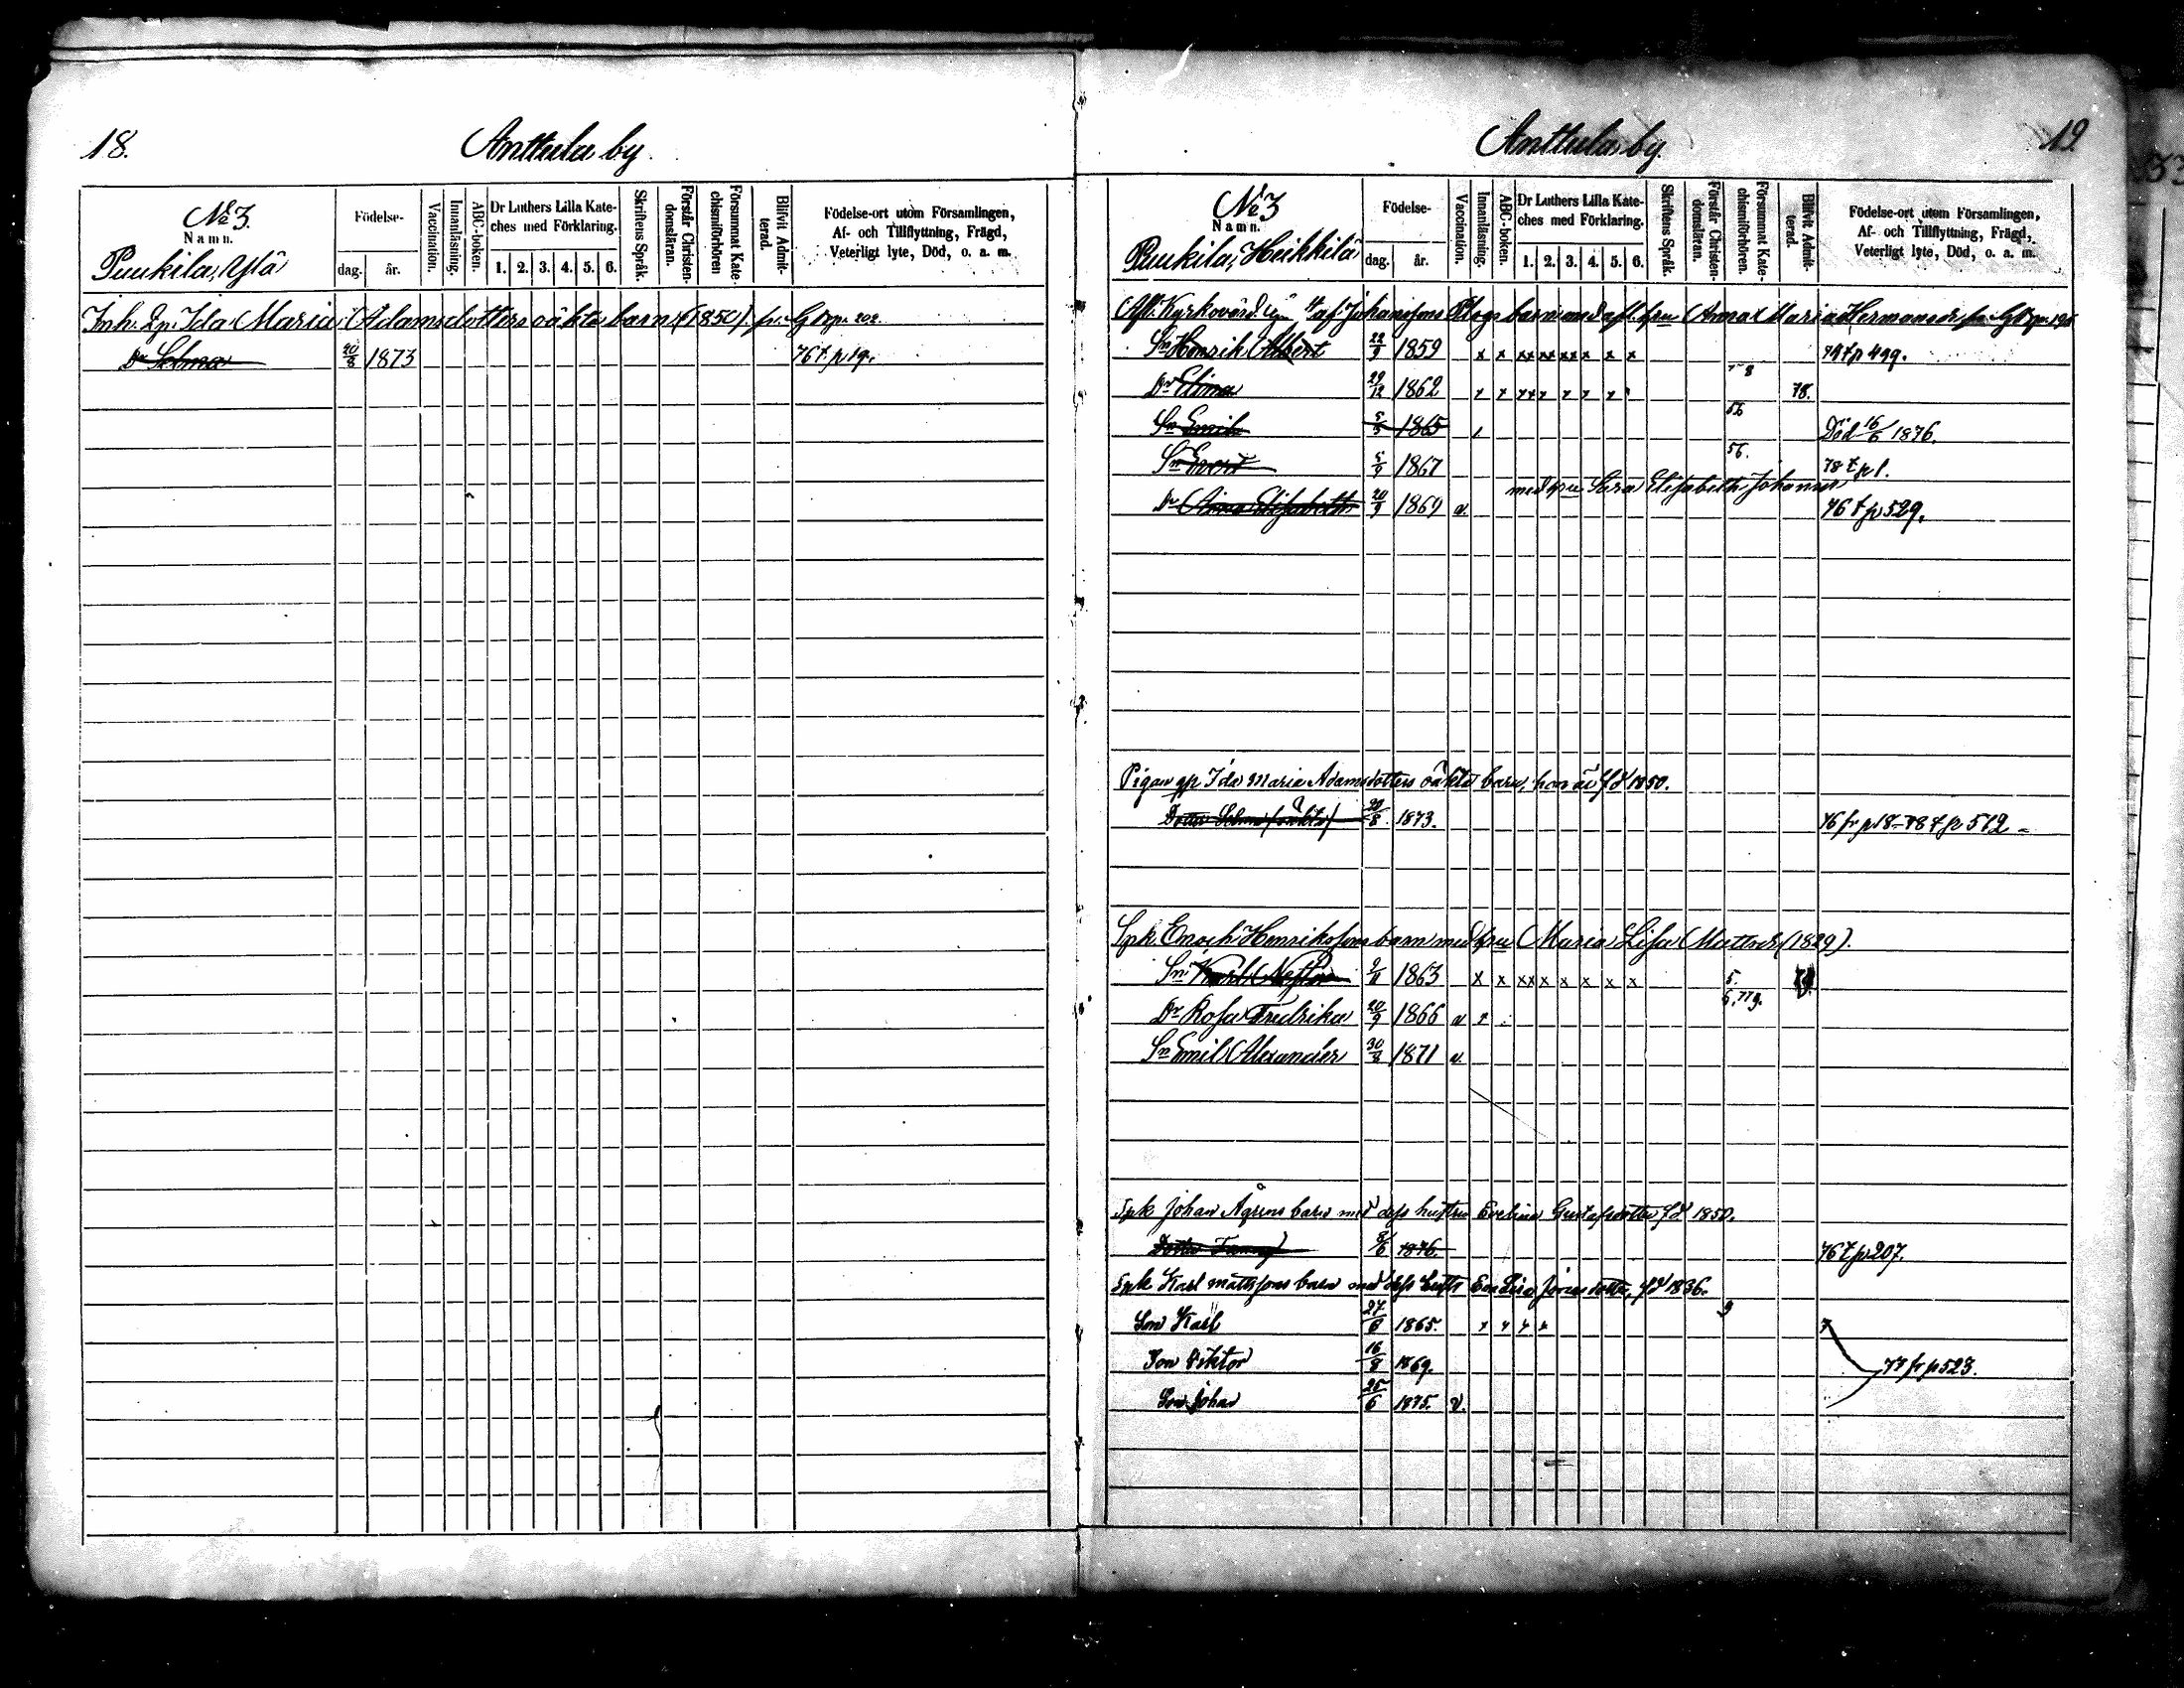 18.
Anttula by.
№ 3.
Namn.
Puukila, Ylä
Födelse-
dag. år.
Vaccination.
Innanläsning.
ABC-boken.
Dr Luthers Lilla Kate-
ches med Förklaring.
1. 2. 3. 4. 5. 6.
Skriftens Språk.
Förstår Christen-
domsläran.
Försummat Kate-
chismiförhören
Blifvit Admit-
terad.
Födelse-ort utom Församlingen,
Af- och Tillflyttning, Frägd,
Veterligt lyte, Död, o. a. m.
Inh. Qp. Ida Maria Adamsdotters oäkta barn (1850) fr. p. 202.
Dr Selma 20/8 1873 76 t. p 19.
Anttula by.
19
№ 3
Namn.
Puukila, Heikkilä
Födelse-
dag. år.
Vaccination.
Innanläsning.
ABC-boken.
Dr Luthers Lilla Kate-
ches med Förklaring.
1. 2. 3. 4. 5. 6.
Skriftens Språk.
Förstår Christen-
domsläran.
Försummat Kate-
chismiförhören.
Blifvit Admit-
terad.
Födelse-ort utom Församlingen,
Af- och Tillflyttning, Frägd,
Veterligt lyte, Död, o. a. m.
Afl. Kyrkovärd. Johanssons barn med afl. hru Anna Maria Hermansdr
Sn Henrik Albert 22/9 1859 x x xx xx xx x x x 79 t p 499.
Dr Elina 29/12 1862 x x xx x x x x 78 78.
Sn Emil 1865 56 Död 16/6 1876.
Sn Evert 5/9 1867 56. 78 t p 1.
med hru Sara Elisabeth Johansdr
Dr Aina Elisabeth 20/9 1869 v. 76 t p 529.
Pigan qp Ida Maria Adamsdotters oäkta barn, hon är fd 1850.
Dotter Selma (oäkta) 20/8 1873. 76 fr p 18 - 78 t p 512
Spk. Enoch Henrikssons barn med hru Maria Lisa Mattsdr (1829).
Sn Karl Nestor 1863 x x xx x x x x x 5.
Dr Rosa Fredrika 20/9 1866 v x 6, 779.
Sn Emil Alexander 30/8 1871 v.
Spk Johan Ågrens barn med dess hustru Evelina Gustafsdotter fd 1850.
Dotter Fanny 8/6 1876. 76 t p 207.
Spk Karl Mattssons barn med dess hustr Eva Lisa Jonasdotter, fd 1836.
Son Karl 1865. x x x x 9
Son Viktor 16/8 1869. 77 fr p 523.
Son Johan 25/6 1875. v.